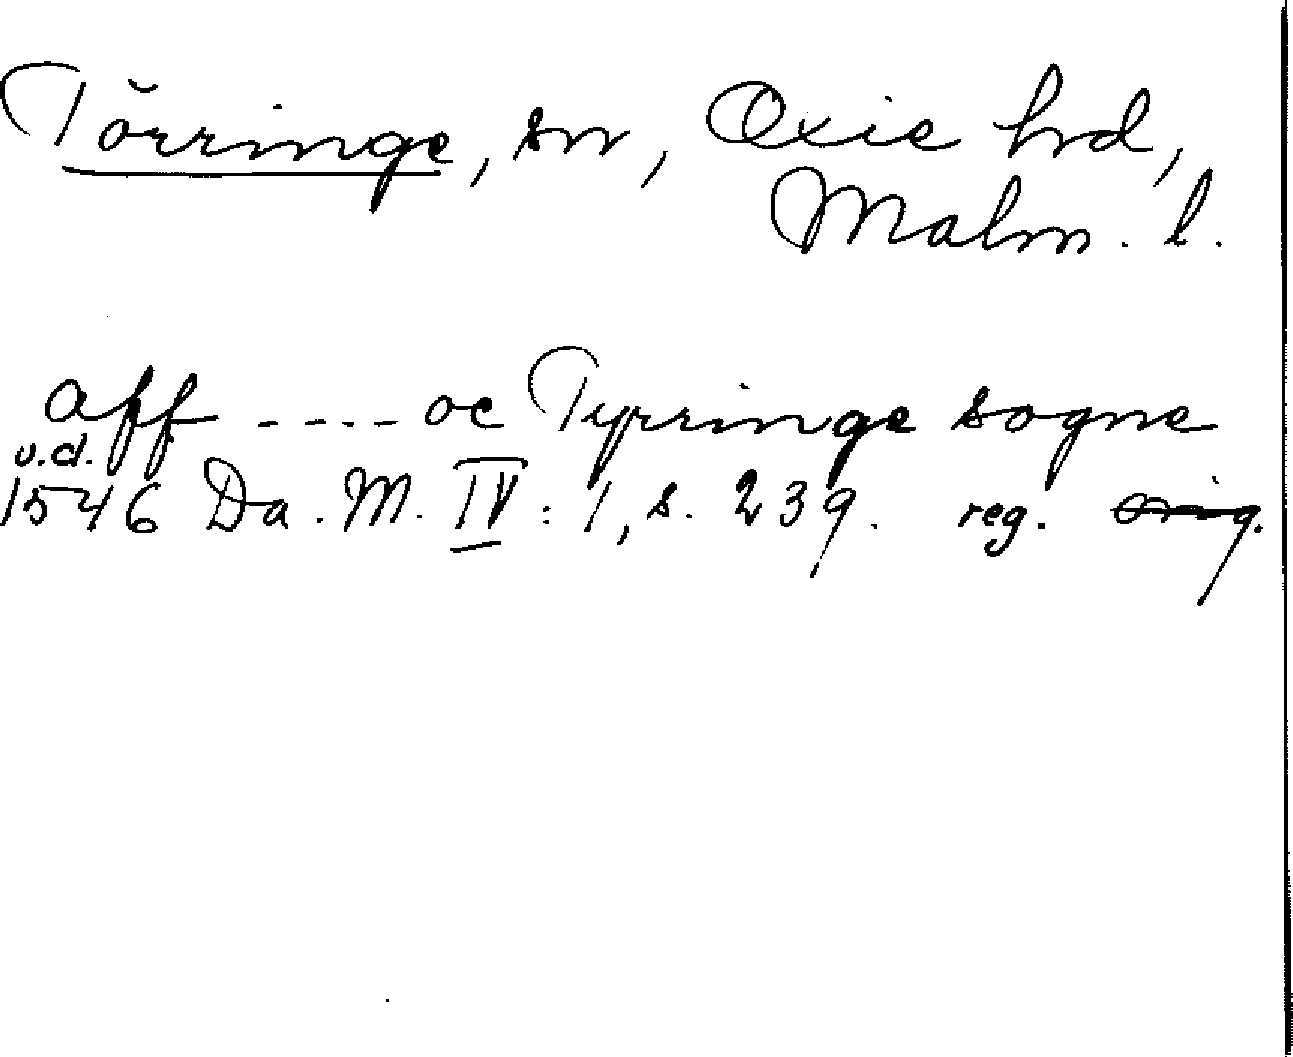 Törringe, sn, Oxie hrd,
Malm. l.
aff ---- oc Tyrringe sogne
u.d.
1546 Da. M. IV: 1, s. 239. reg. orig.